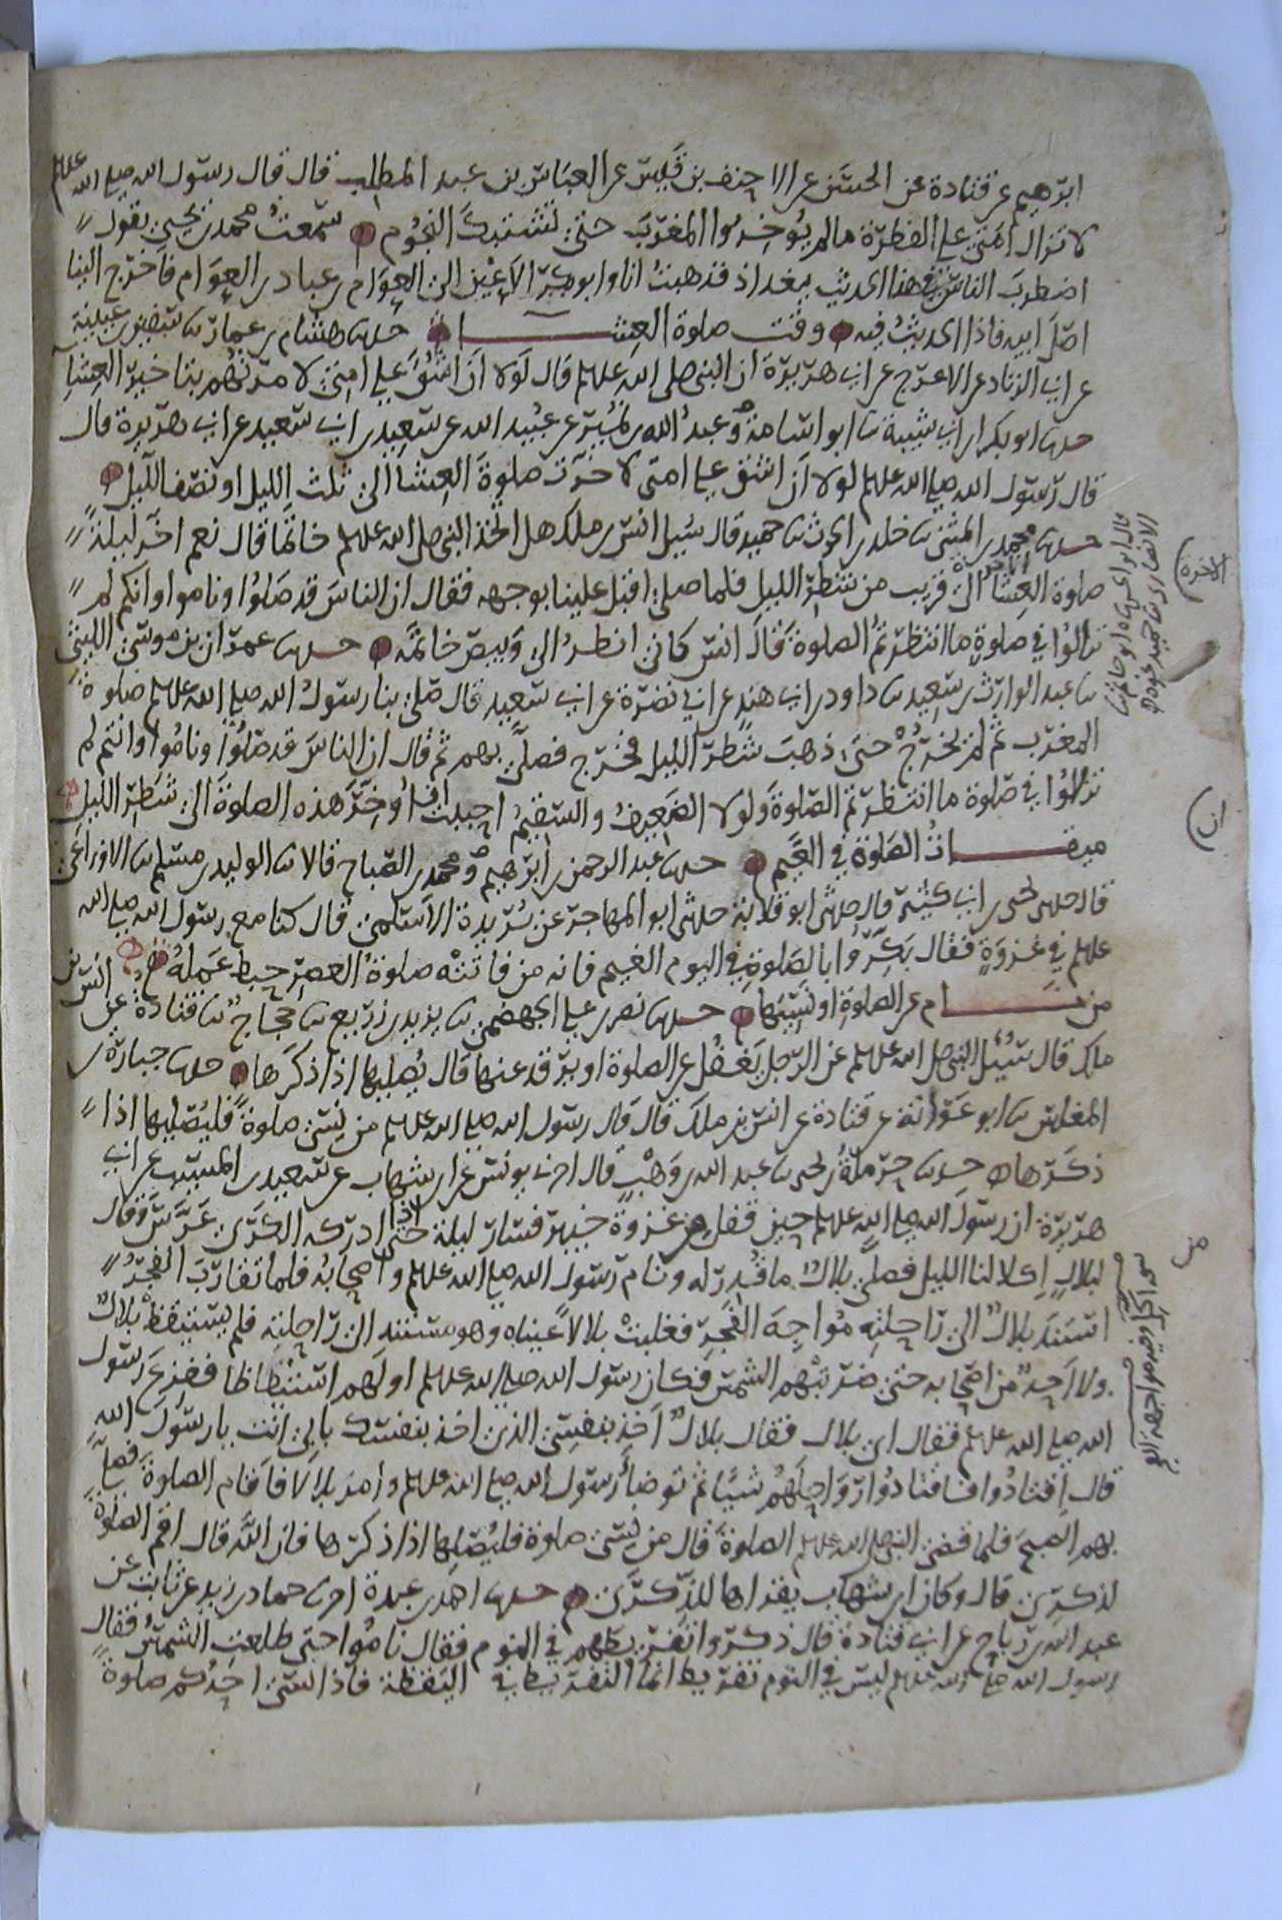 ابرهيم عن قتادة عن الحسن عن الاحنف بن قيس عن العباس بن عبد المطلب قال قال رسول الله صلى الله عليه وسلم
لا تزال امتي على الفطرة ما لم يؤخروا المغرب حتى تشتبك النجوم سمعت محمد بن يحيى يقول
اضطرب الناس في هذا الحديث ببغداذ فذهبت انا وابو بكر الاعين الى العوام بن عباد بن العوام فاخرج الينا
اصل ابيه فاذا الحديث فيه وقت صلوة العشا حدثنا هشام بن عمار ثنا سفين بن عيينة
عن ابي الزناد عن الاعرج عن ابي هريرة ان النبي صلى الله عليه وسلم قال لولا ان اشق على امتي لامرتهم بتاخير العشا
حدثنا ابو بكر بن ابي شيبة ثنا ابو اسامة وعبد الله بن نمير عن عبيد الله عن سعيد بن ابي سعيد عن ابي هريرة قال
قال رسول الله صلى الله عليه وسلم لولا ان اشق على امتي لاخرت صلوة العشا الى ثلث الليل او نصف الليل
حدثنا محمد بن المثنى ثنا خلد بن الحرث ثنا حميد قال سئل انس بن ملك هل اتخذ النبي صلى الله عليه وسلم خاتما قال نعم اخر ليلة
صلوة العشا الى قريب من شطر الليل فلما صلى اقبل علينا بوجهه فقال ان الناس قد صلوا وناموا وانكم لم
تزالوا في صلوة ما انتظرتم الصلوة قال انس كاني انظر الى وبيص خاتمه حدثنا عمران بن موسى الليثي
ثنا عبد الوارث بن سعيد ثنا داود بن ابي هند عن ابي نضرة عن ابي سعيد قال صلى بنا رسول الله صلى الله عليه وسلم صلوة
المغرب ثم لم يخرج حتى ذهب شطر الليل فخرج فصلى بهم ثم قال ان الناس قد صلوا وناموا وانتم لم
تزالوا في صلوة ما انتظرتم الصلوة ولولا الضعيف والسقيم احببت ان اوخر هذه الصلوة الى شطر الليل
ميقات الصلوة في الغيم حدثنا عبد الرحمن بن ابرهيم ومحمد بن الصباح قالا ثنا الوليد بن مسلم ثنا الاوزاعي
قال حدثني يحيى بن ابي كثير قال حدثني ابو قلابة حدثني ابو المهاجر عن بريدة الاسلمي قال كنا مع رسول الله صلى الله
عليه وسلم في غزوة فقال بكروا بالصلوة في اليوم الغيم فانه من فاتته صلوة العصر حبط عمله
من نام عن الصلوة او نسيها حدثنا نصر بن علي الجهضمي ثنا يزيد بن زريع ثنا حجاج ثنا قتادة عن انس بن
ملك قال سئل النبي صلى الله عليه وسلم عن الرجل يغفل عن الصلوة او يرقد عنها قال يصليها اذا ذكرها حدثنا جبارة بن
المغلس ثنا ابو عوانة عن قتادة عن انس بن ملك قال قال رسول الله صلى الله عليه وسلم من نسي صلوة فليصليها اذا
ذكرها حدثنا حرملة بن يحيى ثنا عبد الله بن وهب قال اخبرني يونس عن ابن شهاب عن سعيد بن المسيب عن ابي
هريرة ان رسول الله صلى الله عليه وسلم حين قفل من غزوة خيبر فسار ليلة حتى اذا ادركه الكرى عرس وقال
لبلال اكلا لنا الليل فصلى بلال ما قدر له ونام رسول الله صلى الله عليه وسلم واصحابه فلما تقارب الفجر
استند بلال الى راحلته مواجه الفجر فغلبت بلالا عيناه وهو مستند الى راحلته فلم يستيقظ بلال
ولا احد من اصحابه حتى ضربتهم الشمس فكان رسول الله صلى الله عليه وسلم اولهم استيقاظا ففزع رسول
الله صلى الله عليه وسلم فقال اي بلال فقال بلال اخذ بنفسي الذي اخذ بنفسك بابي انت يا رسول الله
قال اقتادوا فاقتادوا رواحلهم شيئا ثم توضأ رسول الله صلى الله عليه وسلم وامر بلالا فاقام الصلوة فصلى
بهم الصبح فلما قضى النبي صلى الله عليه وسلم الصلوة قال من نسي صلوة فليصلها اذا ذكرها فان الله قال اقم الصلوة
لذكري قال وكان ابن شهاب يقراها للذكرى حدثنا احمد بن عبدة اخبرنا حماد بن زيد عن ثابت عن
عبد الله بن رباح عن ابي قتادة قال ذكروا تفريطهم في النوم فقال ناموا حتى طلعت الشمس فقال
رسول الله صلى الله عليه وسلم ليس في النوم تفريط انما التفريط في اليقظة فاذا نسي احدكم صلوة
الاخرة
ان
من